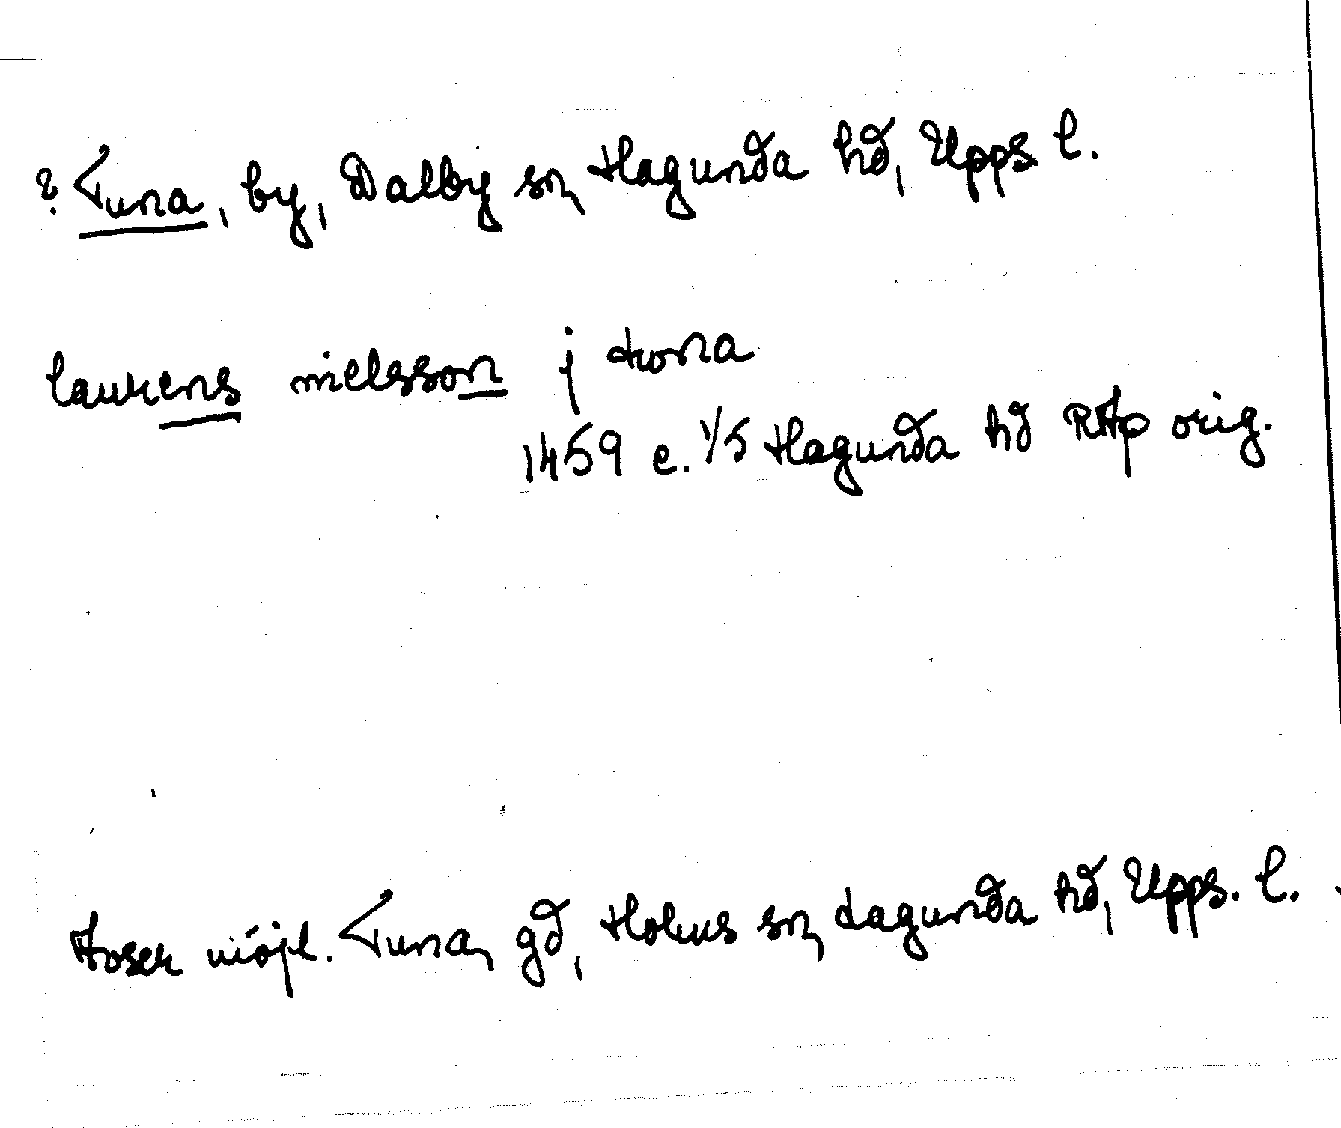 ? Tuna, by, Dalby sn, Hagunda hd, Upps l.
laurens nielsson j tuna
1459 e. 1/5 Hagunda hd RAp orig.
möjl. Tuna, gd, Holms sn, Lagunda hd, Upps. l.